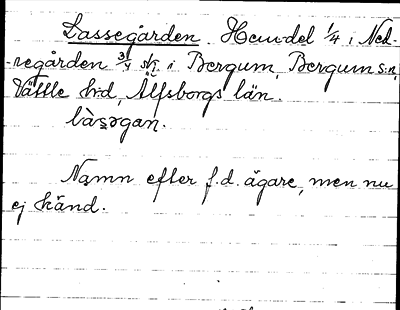 Lassegården. Hemdel 1/4 i Ned-
regården 3/4 sk i Bergum, Bergum s:n,
Vättle h:d, Älfsborgs län.
làs̱əgan.
Namn efter f.d. ägare, men nu
ej känd.